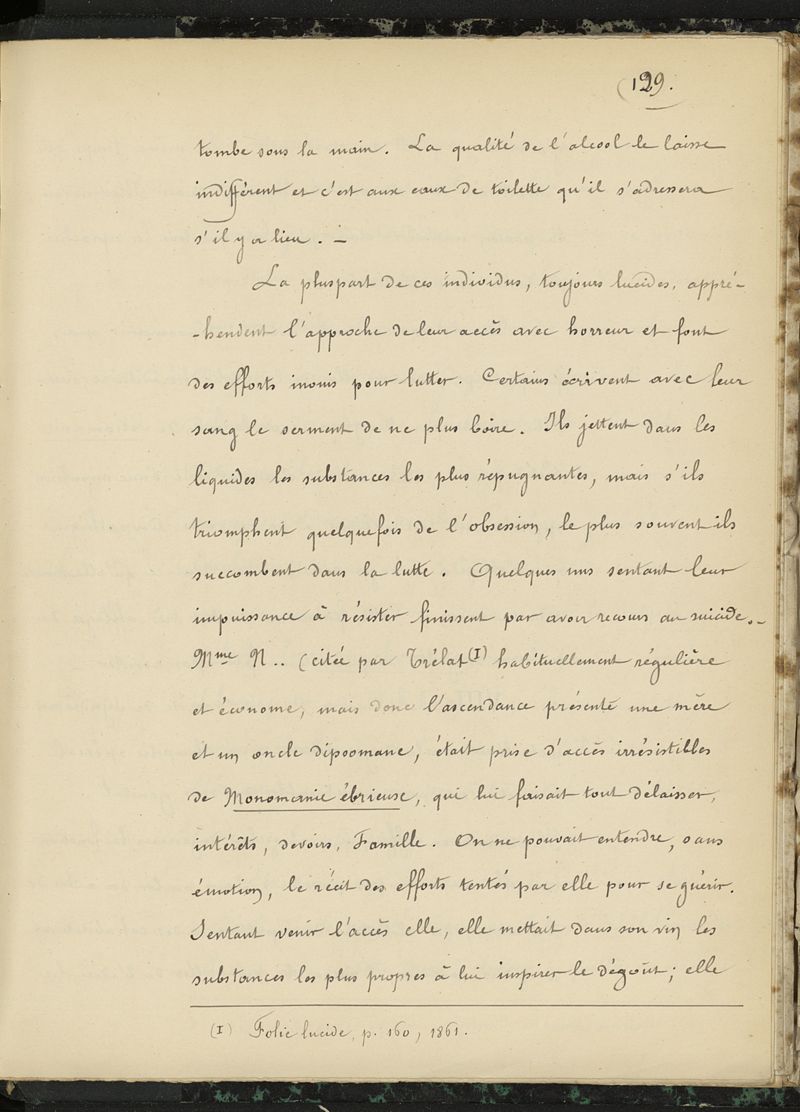 (129.
tombe sous la main. La qualité de l'alcool le laisse
indifférent et c'est aux eaux de toilette qu'il s'adressera
s'il y a lieu. —
La pluspart de ces individus, toujours lucides, appré-
-hendent l'approche de leur accès avec horreur et font
des efforts inouis pour lutter. Certains écrivent avec leur
sang le serment de ne plus boire. Ils jettent dans les
liquides les substances les plus répugnantes, mais s'ils
triomphent quelquefois de l'obsession, le plus souvent ils
succombent dans la lutte. Quelques uns sentant leur
impuissance à résister finissent par avoir recours au suicide. -
Mme N.. (citée par Trélat (I) habituellement régulière
et économe, mais donc l'ascendance présente une mère
et un oncle dipsomane, était prise d'accès irrésistibles
de Monomanie ébrieuse, qui lui faisait tout délaisser,
intérêts, devoirs, Famille. On ne pouvait entendre, sans
émotion, le récit des efforts tentés par elle pour se guérir.
Sentant venir l'accès elle, elle mettait dans son vin les
substances les plus propres à lui inspirer le dégoût; elle
(I) Folie lucide, p. 160, 1861.